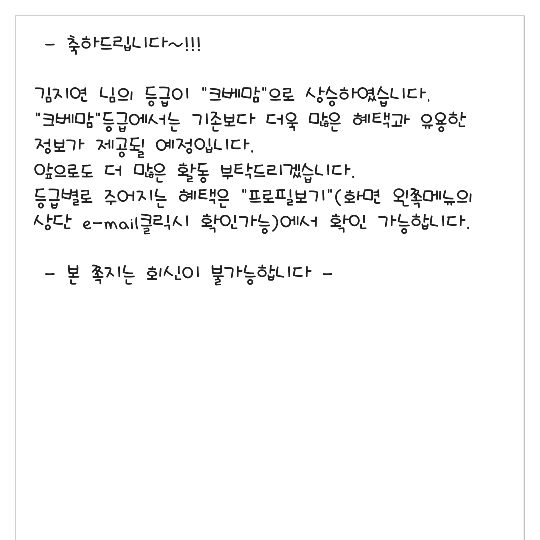 - 축하드립니다~!!!
김지연 님의 등급이 "크베맘"으로 상승하였습니다.
"크베맘"등급에서는 기존보다 더욱 많은 혜택과 유용한
정보가 제공될 예정입니다.
앞으로도 더 많은 활동 부탁드리겠습니다.
등급별로 주어지는 혜택은 "프로필보기"(화면 왼쪽메뉴의
상단 e-mail클릭시 확인가능)에서 확인 가능합니다.
- 본 쪽지는 회신이 불가능합니다 -